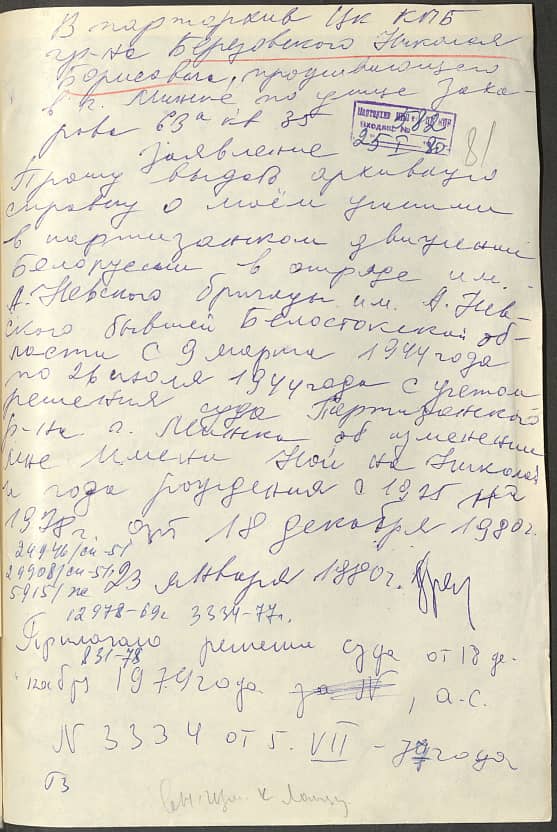 В партархив ЦК КПБ
гр-на Березовского Николая
Борисовича, проживающего
в г. Минске по улице Заха-
рова 63а кв 35
582
25 I 80
81
Заявление
Прошу выдать архивную
справку о моём участии
в партизанском движении
Белоруссии в отряде им.
А. Невского бригады им. А. Нев-
ского бывшей Белостокской об-
ласти с 9 марта 1944 года
по 26 июля 1944 года с учетом
решения суда Партизанского
р-на г. Минска об изменении
мне имени Ной на Николай
и года рождения с 1925 на
от 18 декабря 1980г.
24946/сн-51
24908/сн-51
5915/
23 января 1980г.
12978-69г 3334-77г.
831-78
Прилагаю решение суда от 18 де-
кабря 1979 года , а-с.
N 3334 от 5. VII - 77 года